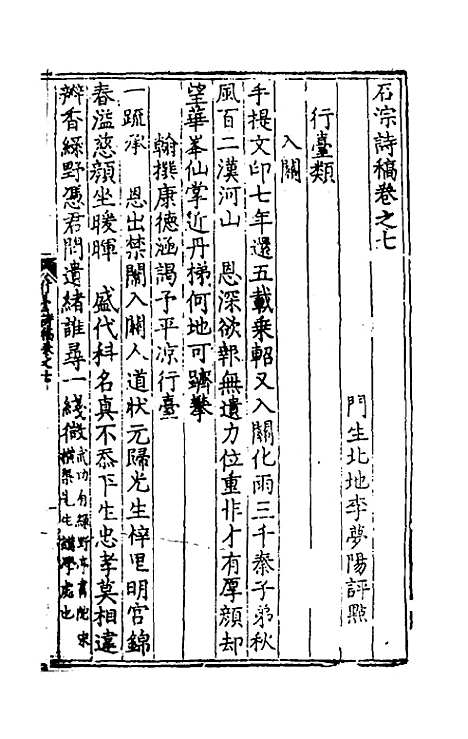 石淙詩稿卷之七
門生北地李夢陽評點
行臺類
入關
手提文印七年還五載乘軺又入關化雨三千秦子弟秋
風百二漢河山 恩深欲報無遺力位重非才有厚顏却
望華峯仙掌近丹梯何地可躋攀
翰撰康德涵謁予平涼行臺
一疏承 恩出禁闈入關人道狀元歸光生梓里明宮錦
春溢慈顏坐暖暉 盛代科名真不忝平生忠孝莫相違
瓣香綠野憑君問遺緒誰尋一綫微武功有綠野亭書院宋
橫渠先生講學處也
行臺詩稿卷之七